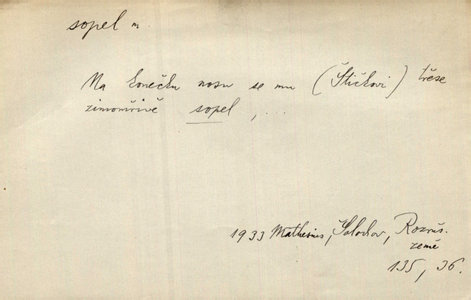 sopel m.
Na konečku nosu se mu (Štičkovi) třese
zimomřivě sopel, ...
1933 Mathesius, Šolochov, Rozruš.
země
135, 36.